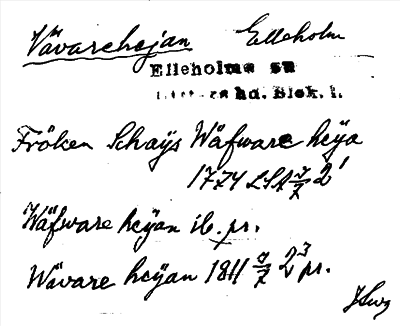 Vävarehejan Elleholm
Elleholms sn
Listers hd. Blek. l.
Fröken Schaijs Wäfware heya
1774 LSA 7/7 2¹
Wäfware heyan ib. pr.
Wävare heyan 1811 9/7 2³ pr.